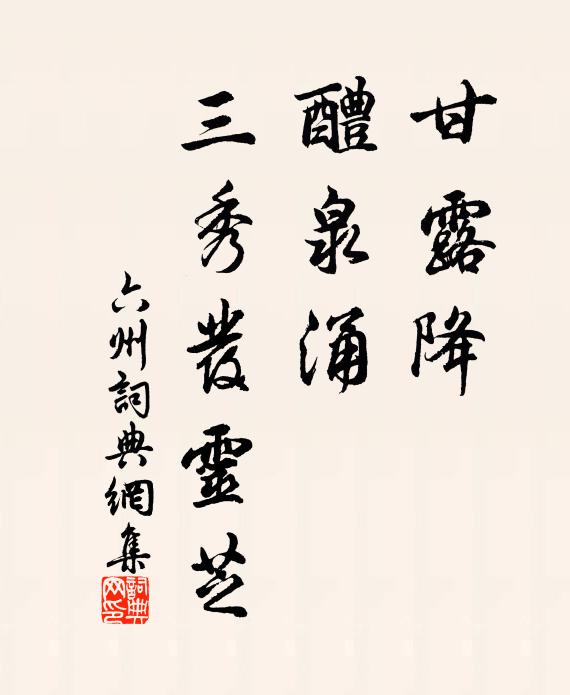 甘露降
醴泉涌
三秀發靈芝
六州詞典網集
詞典
网印